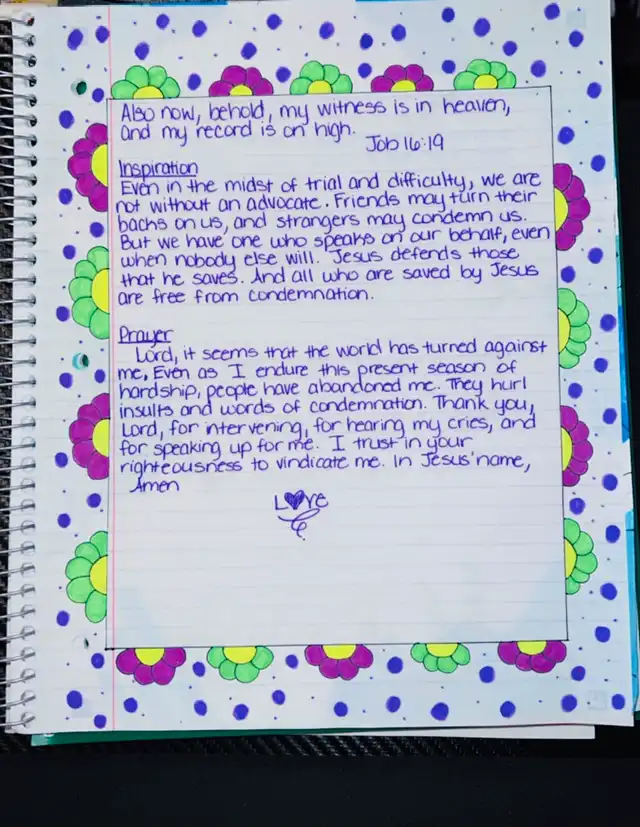 Also now, behold, my witness is in heaven,
and my record is on high.
Job 16:19
Inspiration
Even in the midst of trial and difficulty, we are
not without an advocate. Friends may turn their
backs on us, and strangers may condemn us.
But we have one who speaks on our behalf, even
when nobody else will. Jesus defends those
that he saves. And all who are saved by Jesus
are free from condemnation.
Prayer
Lord, it seems that the world has turned against
me, Even as I endure this present season of
hardship, people have abandoned me. They hurl
insults and words of condemnation. Thank you,
Lord, for intervening, for hearing my cries, and
for speaking up for me. I trust in your
righteousness to vindicate me. In Jesus' name,
Amen
Love